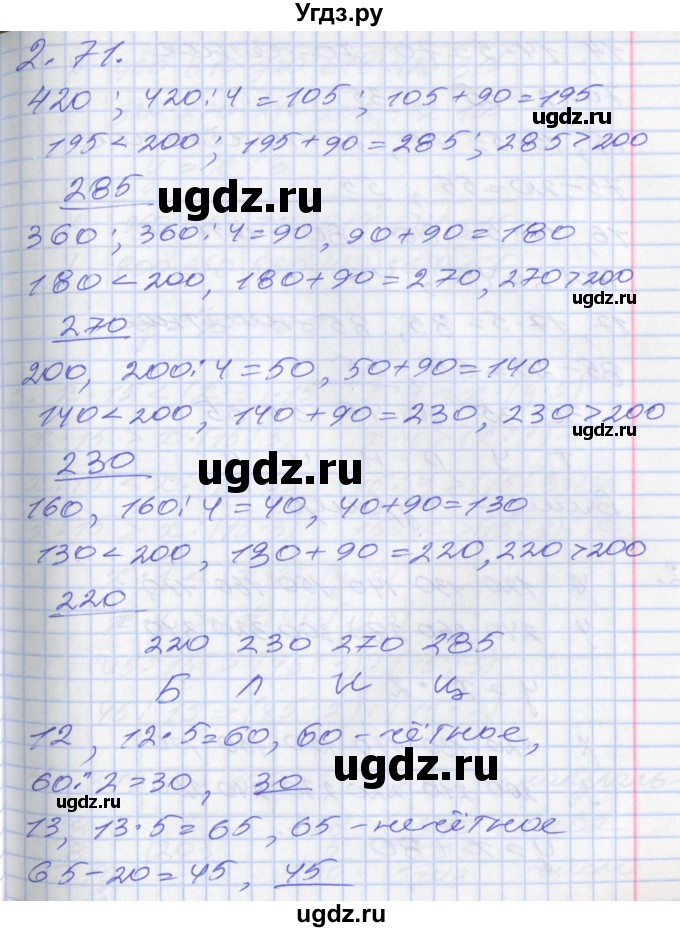 Угдз.ру
2.71.
420 ; 420:4=105 ; 105+90=195
195<200 ; 195+90=285 ; 285>200
285
ugdz.ru
ugdz.ru
360 ; 360:4=90, 90+90=180
180<200, 180+90=270, 270>200
ugdz.ru
270
ugdz.ru
200, 200:4=50, 50+90=140
140<200, 140+90=230, 230>200
ugdz.ru
230
ugdz.ru
160, 160:4=40, 40+90=130
130<200, 130+90=220, 220>200
ugdz.ru
220
220 230 270 285
Б Л И Ц
ugdz.ru
12, 12·5=60, 60-чётное,
60:2=30, 30
ugdz.ru
ugdz.ru
13, 13·5=65, 65-нечётное
65-20=45, 45
ugdz.ru
ugdz.ru